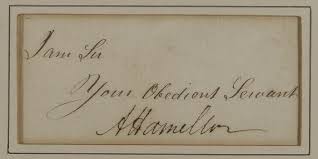 I am Sir
Your Obedient Servant
A Hamilton